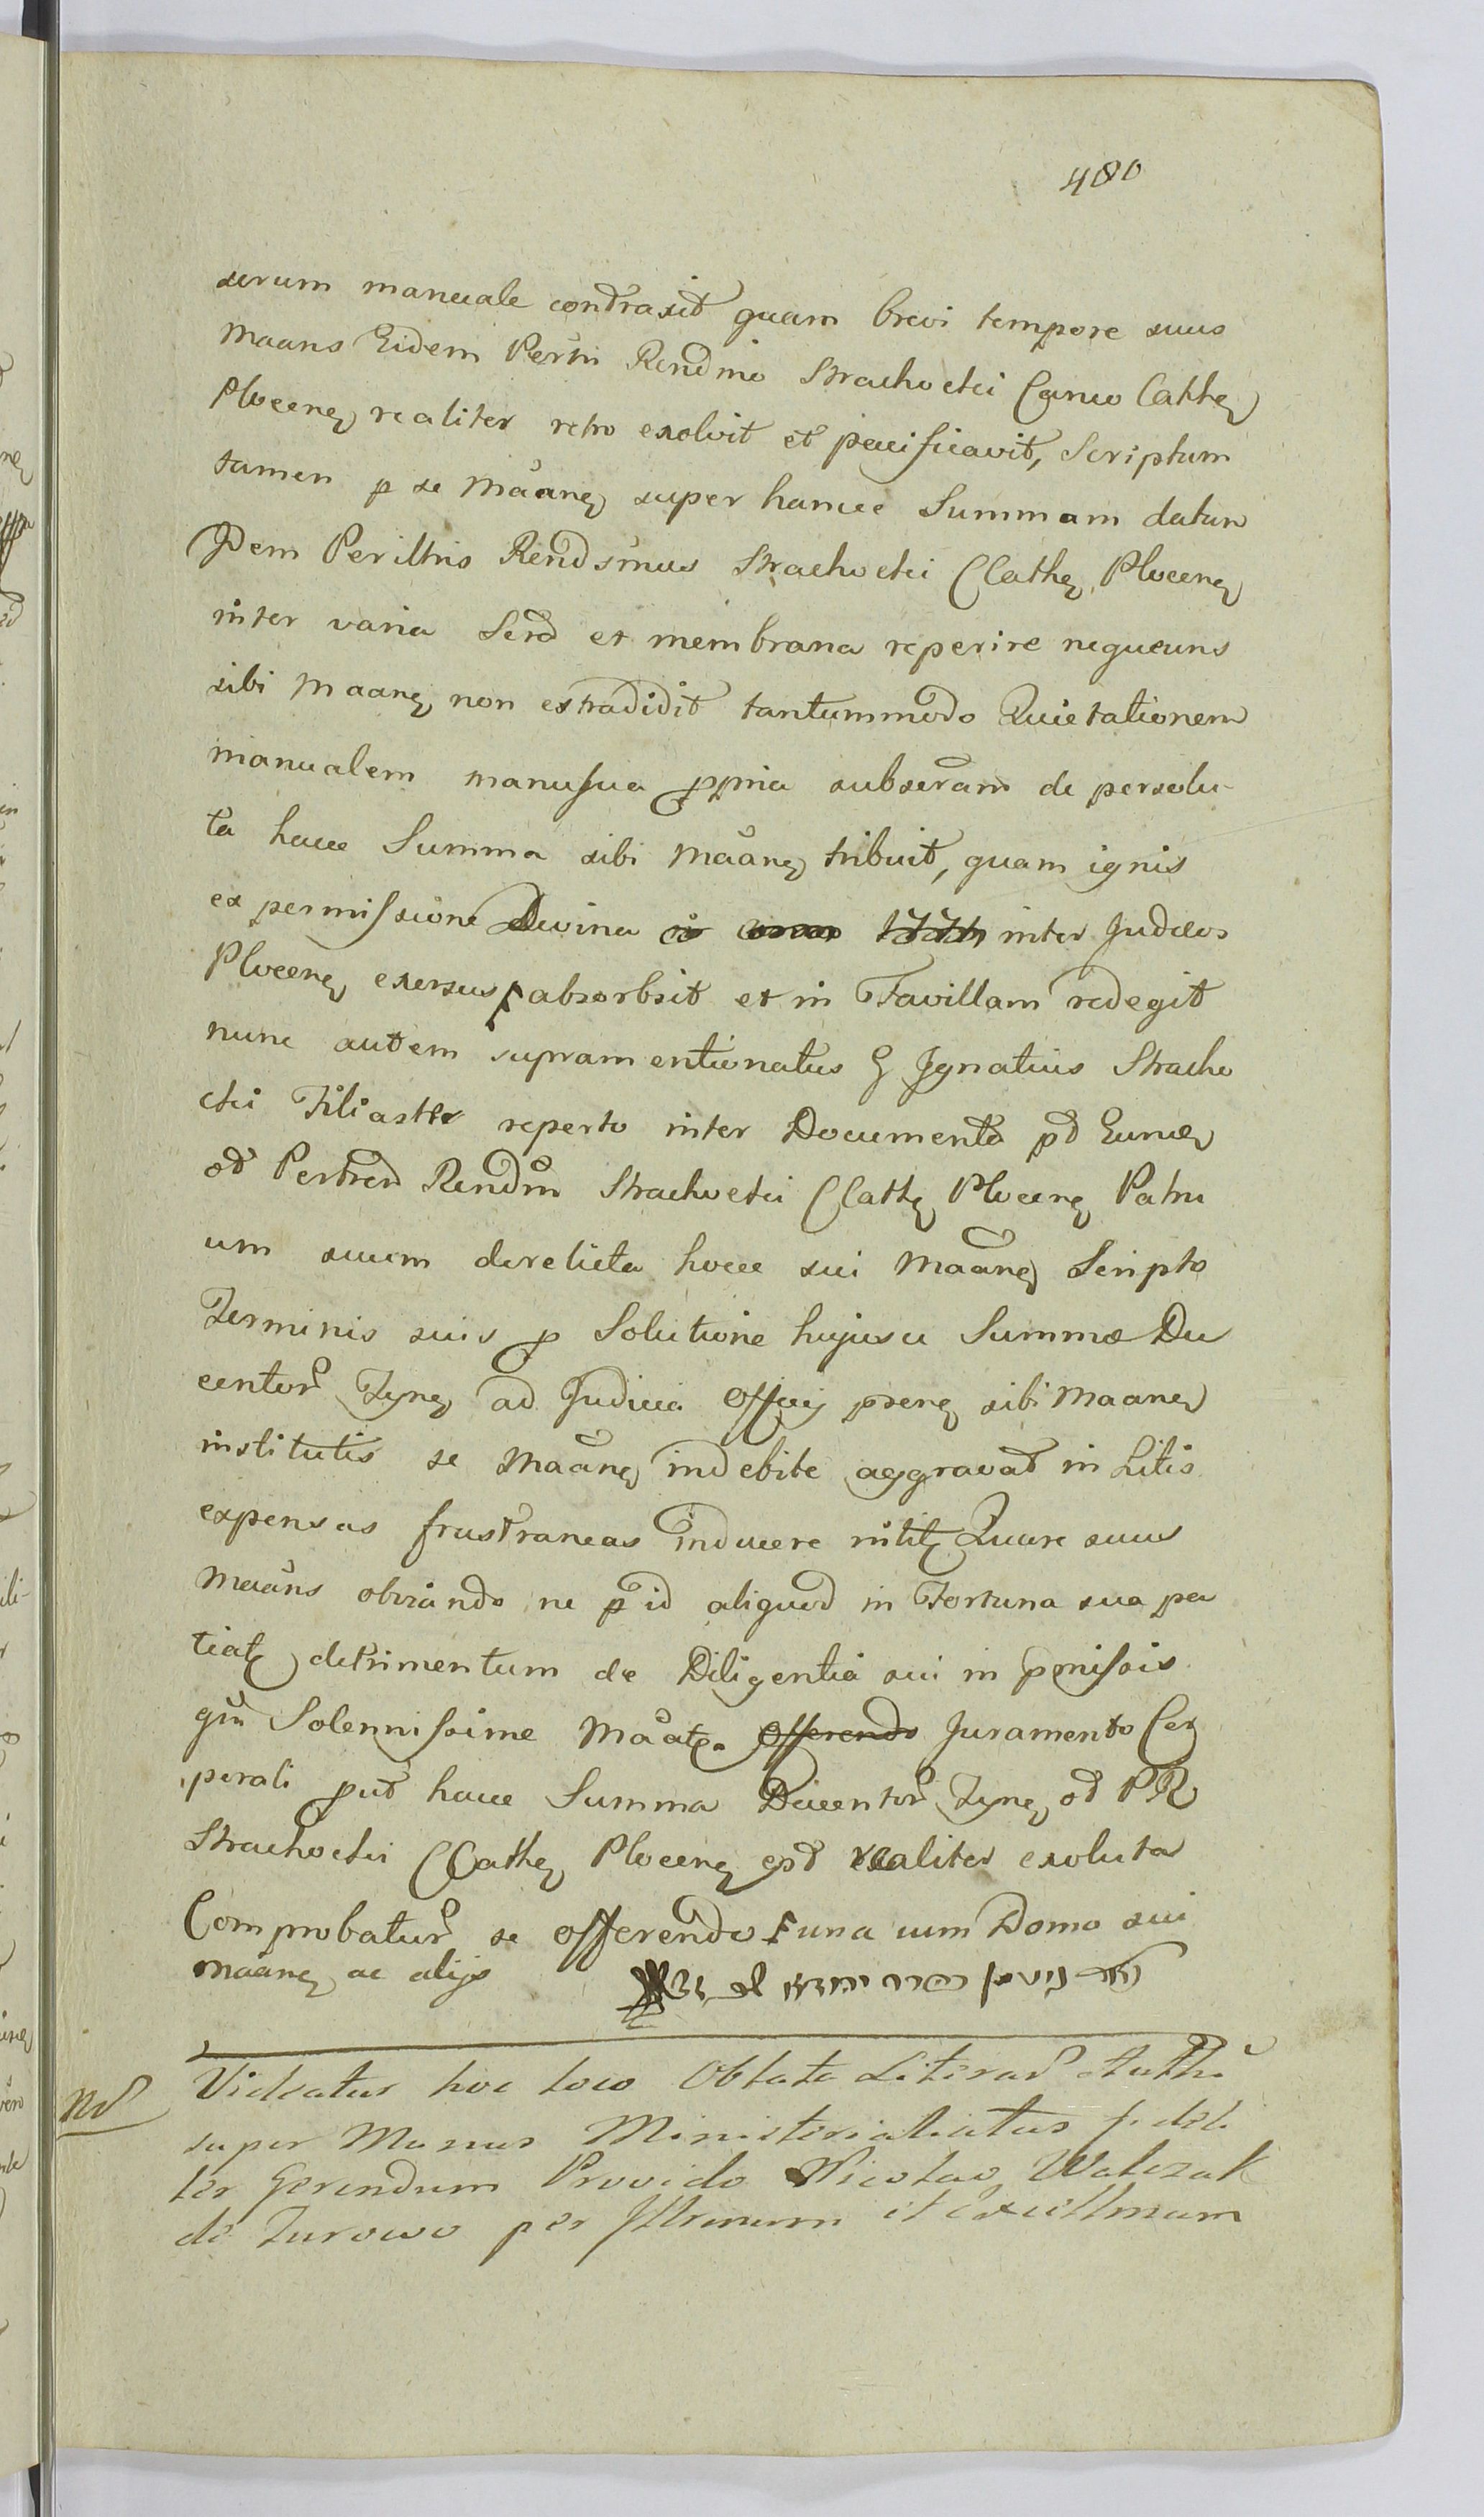 480
serum manuale contraxit quam brevi tempore suus
Maans Eidem Perltri Rendmo Strachocki Canco Cathe
Plocens realiter retro exolvit et pacificavit, Scriptum
tamen p se Maane super hance Summam datum
Idem Perilltris Rendsmus Strachocki CCathe Plocens
inter varia Scrd et membrana reperire nequeuns
sibi Maane non extradidit tantummodo Quietationem
manualem manu sua ppria subscram de persolu-
ta hacce Summa sibi Maane tribuit, quam ignis
ex permissione Divina inter Judæos
Plocens exersus absorbsit et in Favillam redegit
nunc autem supramentionatus G Ignatius Stracho
cki Filiaster reperto inter Documenta pd Eunde
od Perltrem Rendm Strachocki CCathe Plocens Patru
um suum derelicta hocce sui Maane Scripto
Terminis suis p Solutione hujusce Summæ Du
centor Tyne ad Judicia Officij prens sibi Maane
institutis se Maane indebite aggravat in Litis
expensas frustraneas inducere nitit Quare suus
Maans obviando ne p id aliquod in Fortuna sua pa
tiat detrimentum de Diligentia sui in pmissis
qm Solennissime Maat. Offerendo Juramento Cor
porali put hacce Summa Ducentor Tyne od PR
Strachocki CCathe Plocens est realiter exoluta
Comprobatur se offerendo una cum Domo sui
Maane ac alijs
Nd
Videatur hoc loco Oblata Literar Auth
super Munus Ministerialiatus fideli
ter Gerendum Provido Nicolao Walczak
de Turowo per Illtrmum et Excellmum